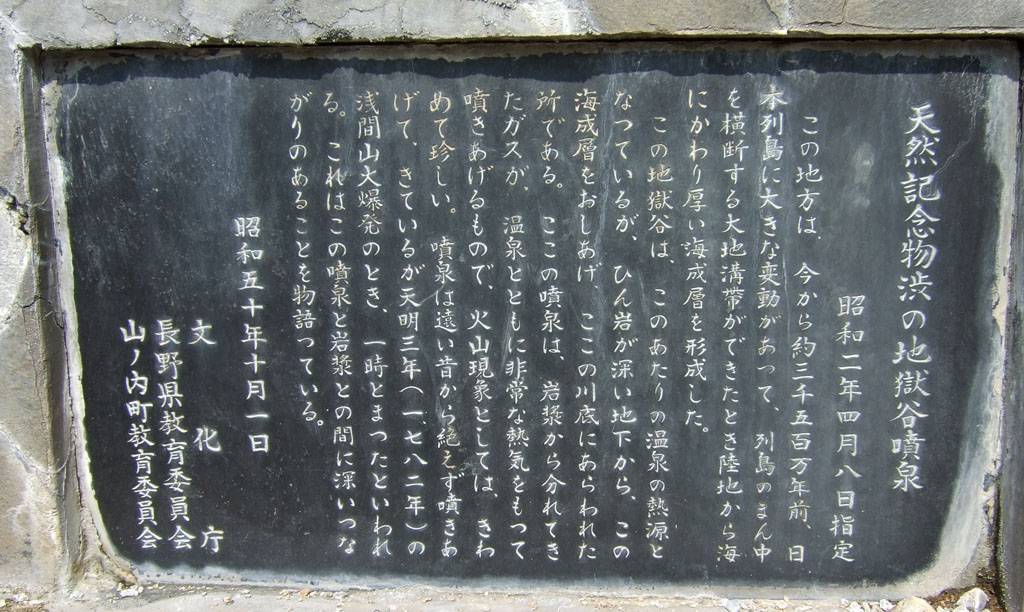 天然記念物渋の地獄谷噴泉
昭和二年四月八日指定
この地方は、今から約三千五百万年前、日
本列島に大きな変動があって、列島のまん中
を横断する大地溝帯ができたとき陸地から海
にかわり厚い海成層を形成した。
この地獄谷は、このあたりの温泉の熱源と
なつているが、ひん岩が深い地下から、この
海成層をおしあげ、ここの川底にあらわれた
所である。ここの噴泉は、岩漿から分れてき
たガスが、温泉とともに非常な熱気をもつて
噴きあげるもので、火山現象としては、きわ
めて珍しい。噴泉は遠い昔から絶えず噴きあ
げて、きているが天明三年(一、七八二年)の
浅間山大爆発のとき、一時とまつたといわれ
る。これはこの噴泉と岩漿との間に深いつな
がりのあることを物語っている。
昭和五十年十月一日
文化庁
長野県教育委員会
山ノ内町教育委員会